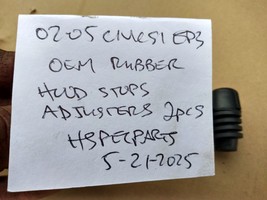 02-05 CIVIC SI EP3
OEM RUBBER
HOOD STOPS
ADJUSTERS 2pcs
HSPECPARTS
5-21-2025